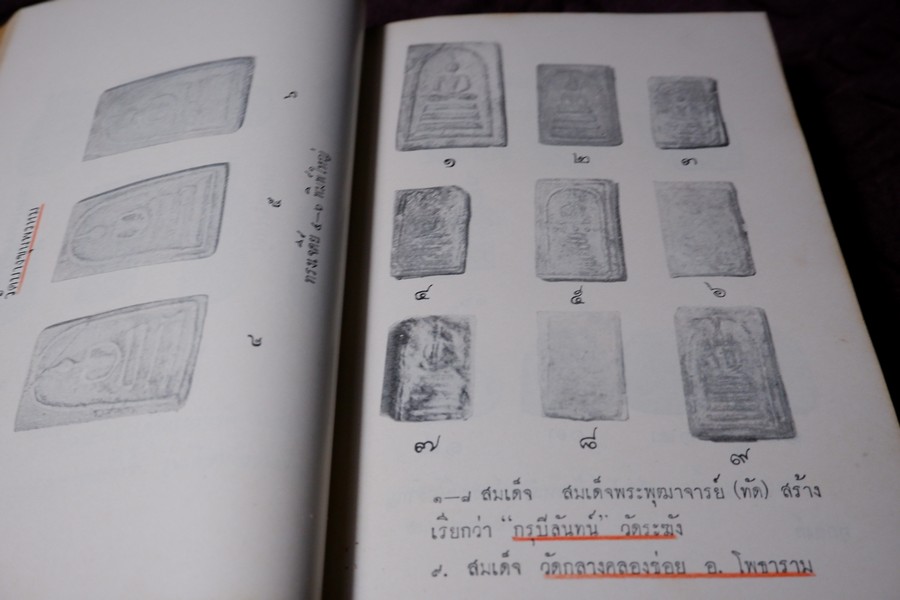 วัดบางขุนพรหม
๔
๕
๖
ทรงเจดีย์ ๔—๖
๑
๒
๓
๔
๕
๖
๗
๘
๙
๑—๘ สมเด็จ สมเด็จพระพุฒาจารย์ (ทัด) สร้าง
เรียกว่า "กรุปีลันทน์" วัดระฆัง
๙. สมเด็จ วัดกลางคลองข่อย อ. โพธาราม